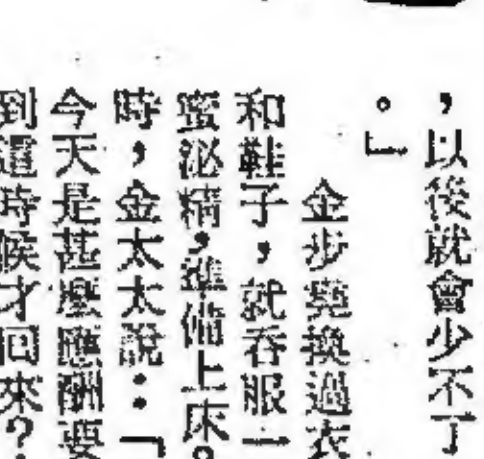 ，以後就會少不了
。」
金步堯換過衣
和鞋子，就吞服一
蜜泌精，準備上床。
時，金太太說：「
今天是甚麼應酬要
到這時候才回來？